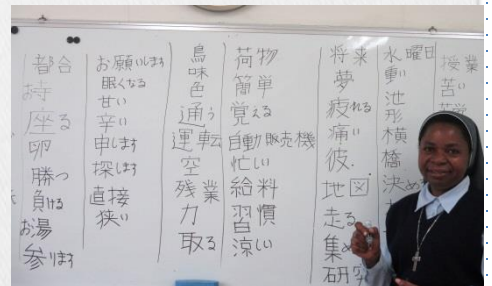 都合
お寺
座る
卵
勝つ
負ける
お湯
参ります
お願いします
眠くなる
甘い
辛い
申します
探します
直接
狭い
鳥
味
色
通う
運転
空
残業
力
取る
荷物
簡単
覚える
自動販売機
忙しい
給料
習慣
涼しい
将来
夢
疲れる
痛い
彼
地図
走る
集め
研究
水曜日
重い
池
形
横
橋
決め
授業
苦い